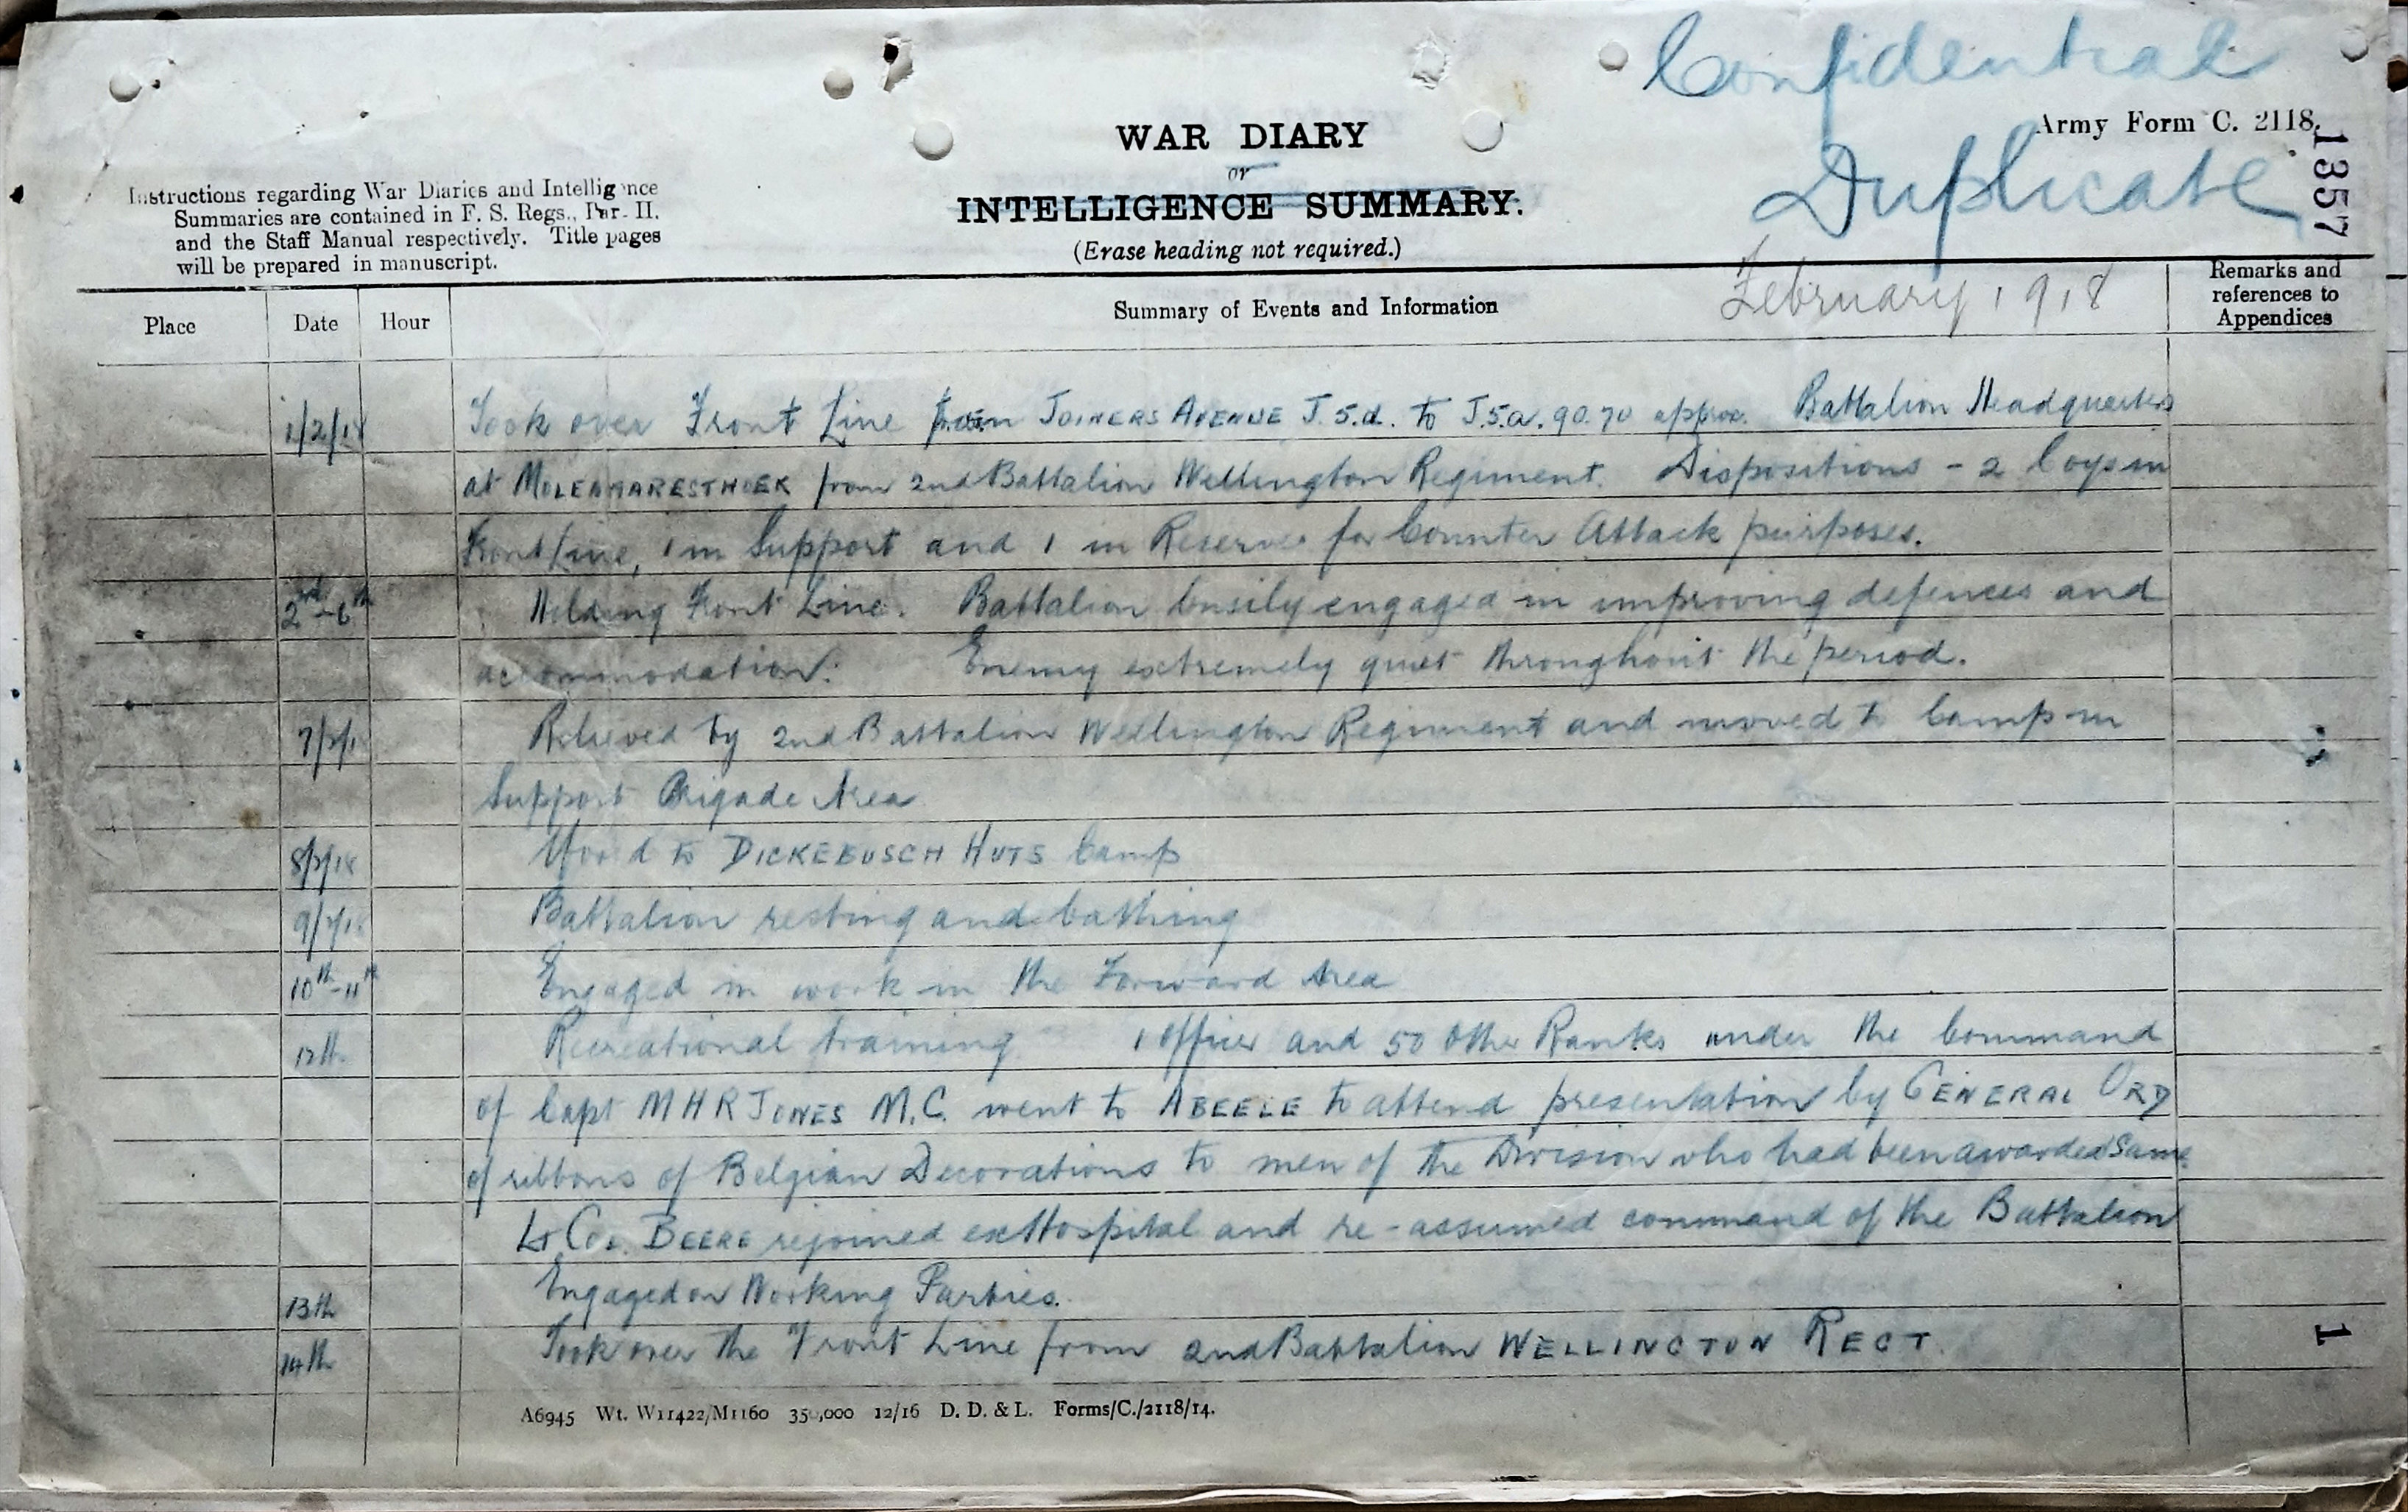 Confidential
Army Form C. 2118.
Duplicate
1357
WAR DIARY
or
INTELLIGENCE SUMMARY.
(Erase heading not required.)
Instructions regarding War Diaries and Intelligence
Summaries are contained in F. S. Regs., Part II.
and the Staff Manual respectively. Title pages
will be prepared in manuscript.
February 1918
Place Date Hour Summary of Events and Information Remarks and
references to
Appendices
1/2/18 Took over Front Line from JOINERS AVENUE J.5.d. to J.5.a.90.70 approx. Battalion Headquarters
at MOLENAARESTHOEK from 2nd Battalion Wellington Regiment. Dispositions - 2 Coys in
Front Line, 1 in Support and 1 in Reserve for Counter Attack purposes.
2nd-6th Holding Front Line. Battalion busily engaged in improving defences and
accommodation. Enemy extremely quiet throughout the period.
7/2/18 Relieved by 2nd Battalion Wellington Regiment and moved to Camp in
Support Brigade Area
8/2/18 Moved to DICKEBUSCH HUTS Camp
9/2/18 Battalion resting and bathing
10th-11th Engaged in work in the Forward Area
12th Recreational training 1 Officer and 50 Other Ranks under the Command
of Capt M H R JONES M.C. went to ABEELE to attend presentation by GENERAL ORD
of ribbons of Belgian Decorations to men of the Division who had been awarded same
Lt Col. BEERE rejoined ex Hospital and re-assumed command of the Battalion
13th Engaged on Working Parties.
14th Took over the Front Line from 2nd Battalion WELLINGTON REGT.
1
A6945 Wt. W11422/M1160 350,000 12/16 D. D. & L. Forms/C./2118/14.